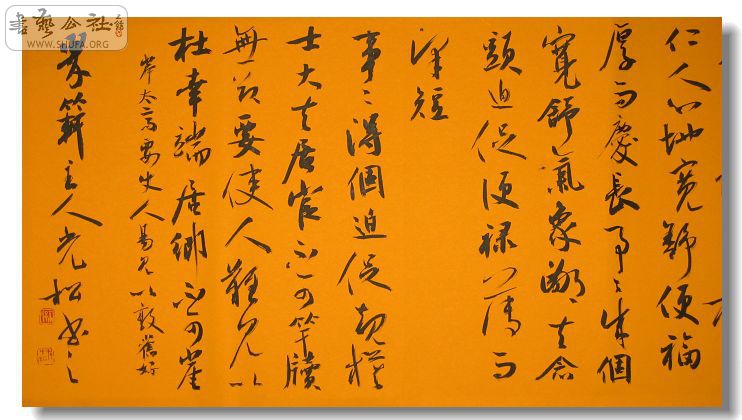 書藝公社
WWW.SHUFA.ORG
仁人心地寬舒便福
厚而慶長事〻成個
寬舒氣象鄙夫念
頭迫促便祿薄而
澤短
事〻得個迫促規模
士大夫居官不可竿牘
無節要使人難見以
杜幸端居鄉不可崖
岸太高要使人易見以敦舊好
軒主人光松書之